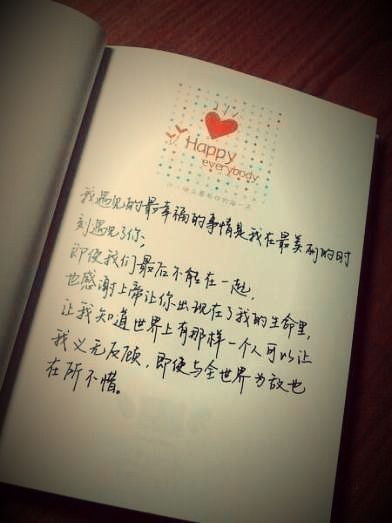 Happy
everybody
我遇见的最幸福的事情是我在最美丽的时
刻遇见了你,
即使我们最后不能在一起,
也感谢上帝让你出现在了我的生命里,
让我知道世界上有那样一个人可以让
我义无反顾,即使与全世界为敌也
在所不惜。